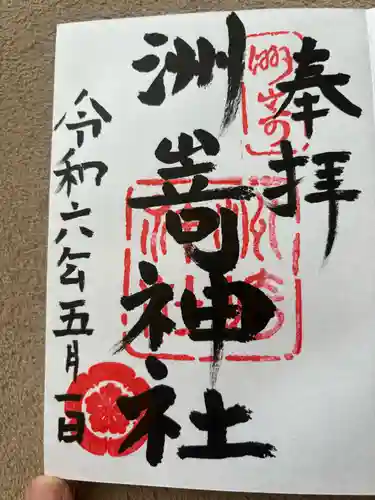 奉拝
洲嵜神社
令和六年五月一日